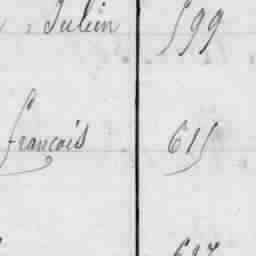 Julien 599
françois 615